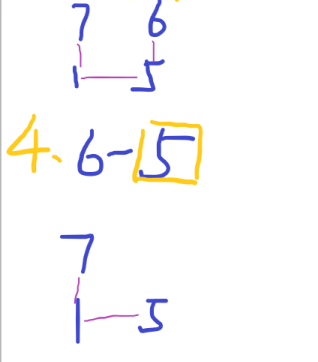 7 6
1 5
4. 6-5
7
1 5